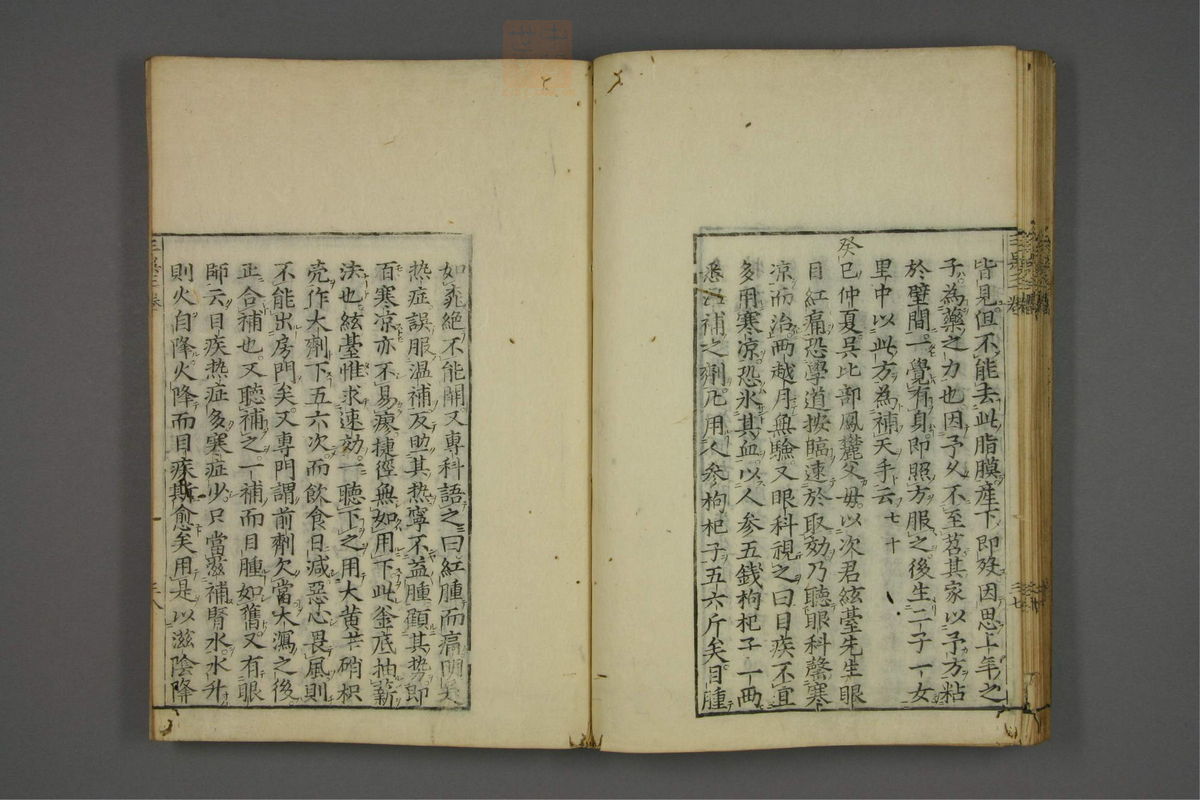 皆見但不能去此脂膜産下即殁因思十年之
子為藥之力也因予久不至茗其家以予方粘
於壁間一覺有身即照方服之後生二子一女
里中以此方為補天手云 七十
癸巳仲夏吴比部鳳麓父母以次君絃臺先生眼
目紅痛恐學道按臨速於取効乃聽眼科罄寒
凉而治兩越月無驗又眼科視之曰目疾不宜
多用寒凉恐氷其血以人參五錢枸杞子一兩
悉江補之劑凡用人參枸杞子五六斤矣目腫
如脃絶不能開又專科語之曰紅腫而痛閉矣
热症誤服温補反助其热寧不益腫顧其势即
百寒凉亦不易療捷徑無如用下此釜底抽薪
法也絃臺惟求速効一聽下之用大黄芒硝枳
壳作大劑下五六次而飲食日减惡心畏風則
不能出房門矣又專門謂前劑欠當大瀉之後
正合補也又聽補之一補而目腫如舊又有眼
師云目疾热症多寒症少只當滋補腎水水升
則火自降火降而目疾斯愈矣用是以滋陰降